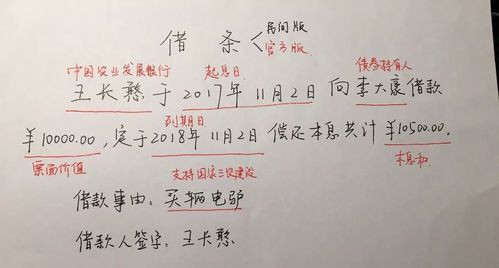 借条 < 民间版
官方版
中国农业发展银行 起息日 债券持有人
王长憨于2017年11月2日向李大康借款
到期日
¥10000.00,定于2018年11月2日偿还本息共计¥10500.00.
票面价值 支持国家三农建设 本息和
借款事由:买辆电驴
借款人签字:王长憨